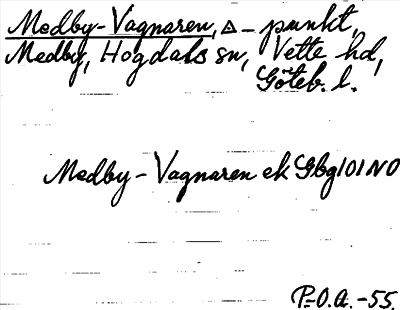 Medby-Vagnaren, Δ-punkt,
Medby, Hogdals sn, Vette hd,
Göteb. l.
Medby-Vagnaren ek Gbg 101 NO
P.O.A. -55.